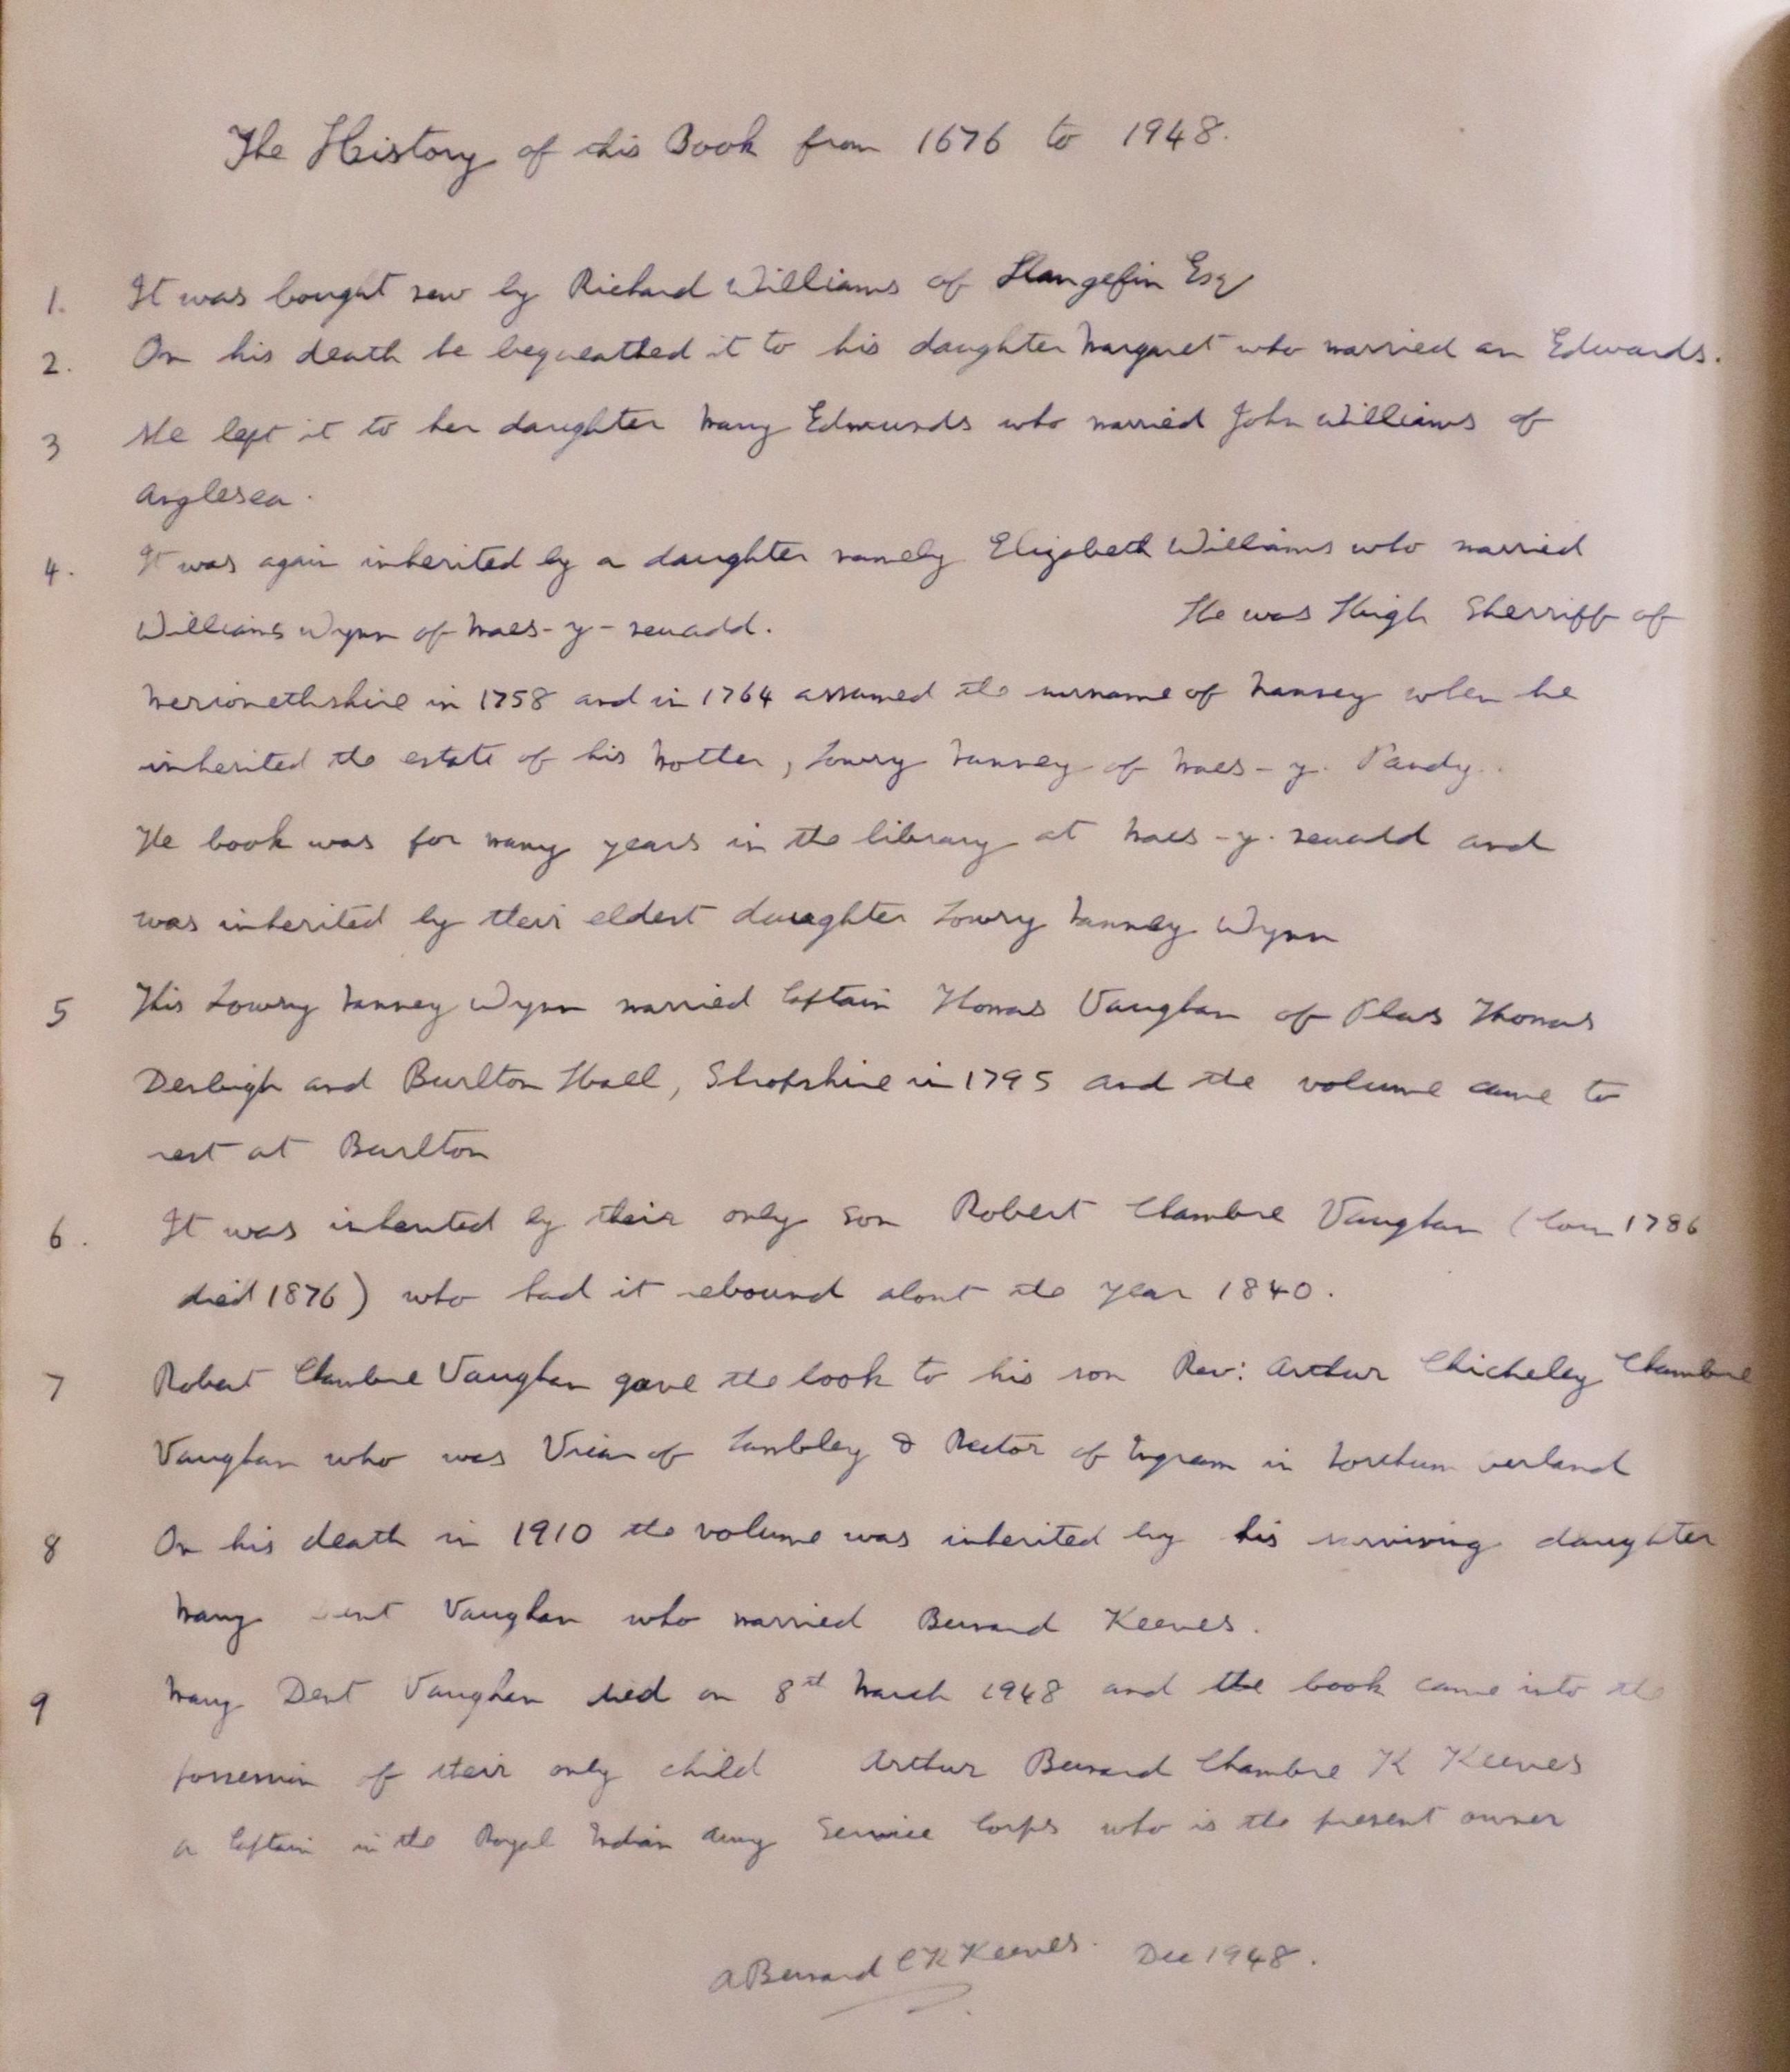 The History of this Book from 1676 to 1948.
1. It was bought new by Richard Williams of Llangefin Esq
2. On his death he bequeathed it to his daughter Margaret who married an Edwards.
3 She left it to her daughter Mary Edmunds who married John Williams of
Anglesea.
4. It was again inherited by a daughter namely Elizabeth Williams who married
Williams Wynn of Maes-y-neuadd. He was High Sherriff of
Merionethshire in 1758 and in 1764 assumed the surname of Nanney when he
inherited the estate of his Mother, Lowry Nanney of Maes-y-Pandy.
The book was for many years in the library at Maes-y-neuadd and
was inherited by their eldest daughter Lowry Nanney Wynn
5 This Lowry Nanney Wynn married Captain Thomas Vaughan of Plas Thomas
Denbigh and Burlton Hall, Shropshire in 1795 and the volume came to
rest at Burlton
6. It was inherited by their only son Robert Chambre Vaughan (born 1796
died 1876) who had it rebound about the year 1840.
7 Robert Chambre Vaughan gave the book to his son Rev: Arthur Chicheley Chambre
Vaughan who was Vicar of Lambley & Rector of Ingram in Northumberland
8 On his death in 1910 the volume was inherited by his surviving daughter
Mary Dent Vaughan who married Bernard Keeves.
9 Mary Dent Vaughan died on 8th March 1948 and the book came into the
possession of their only child Arthur Bernard Chambre K Keeves
a Captain in the Royal Indian Army Service Corps who is the present owner
A Bernard C K Keeves. Dec 1948.